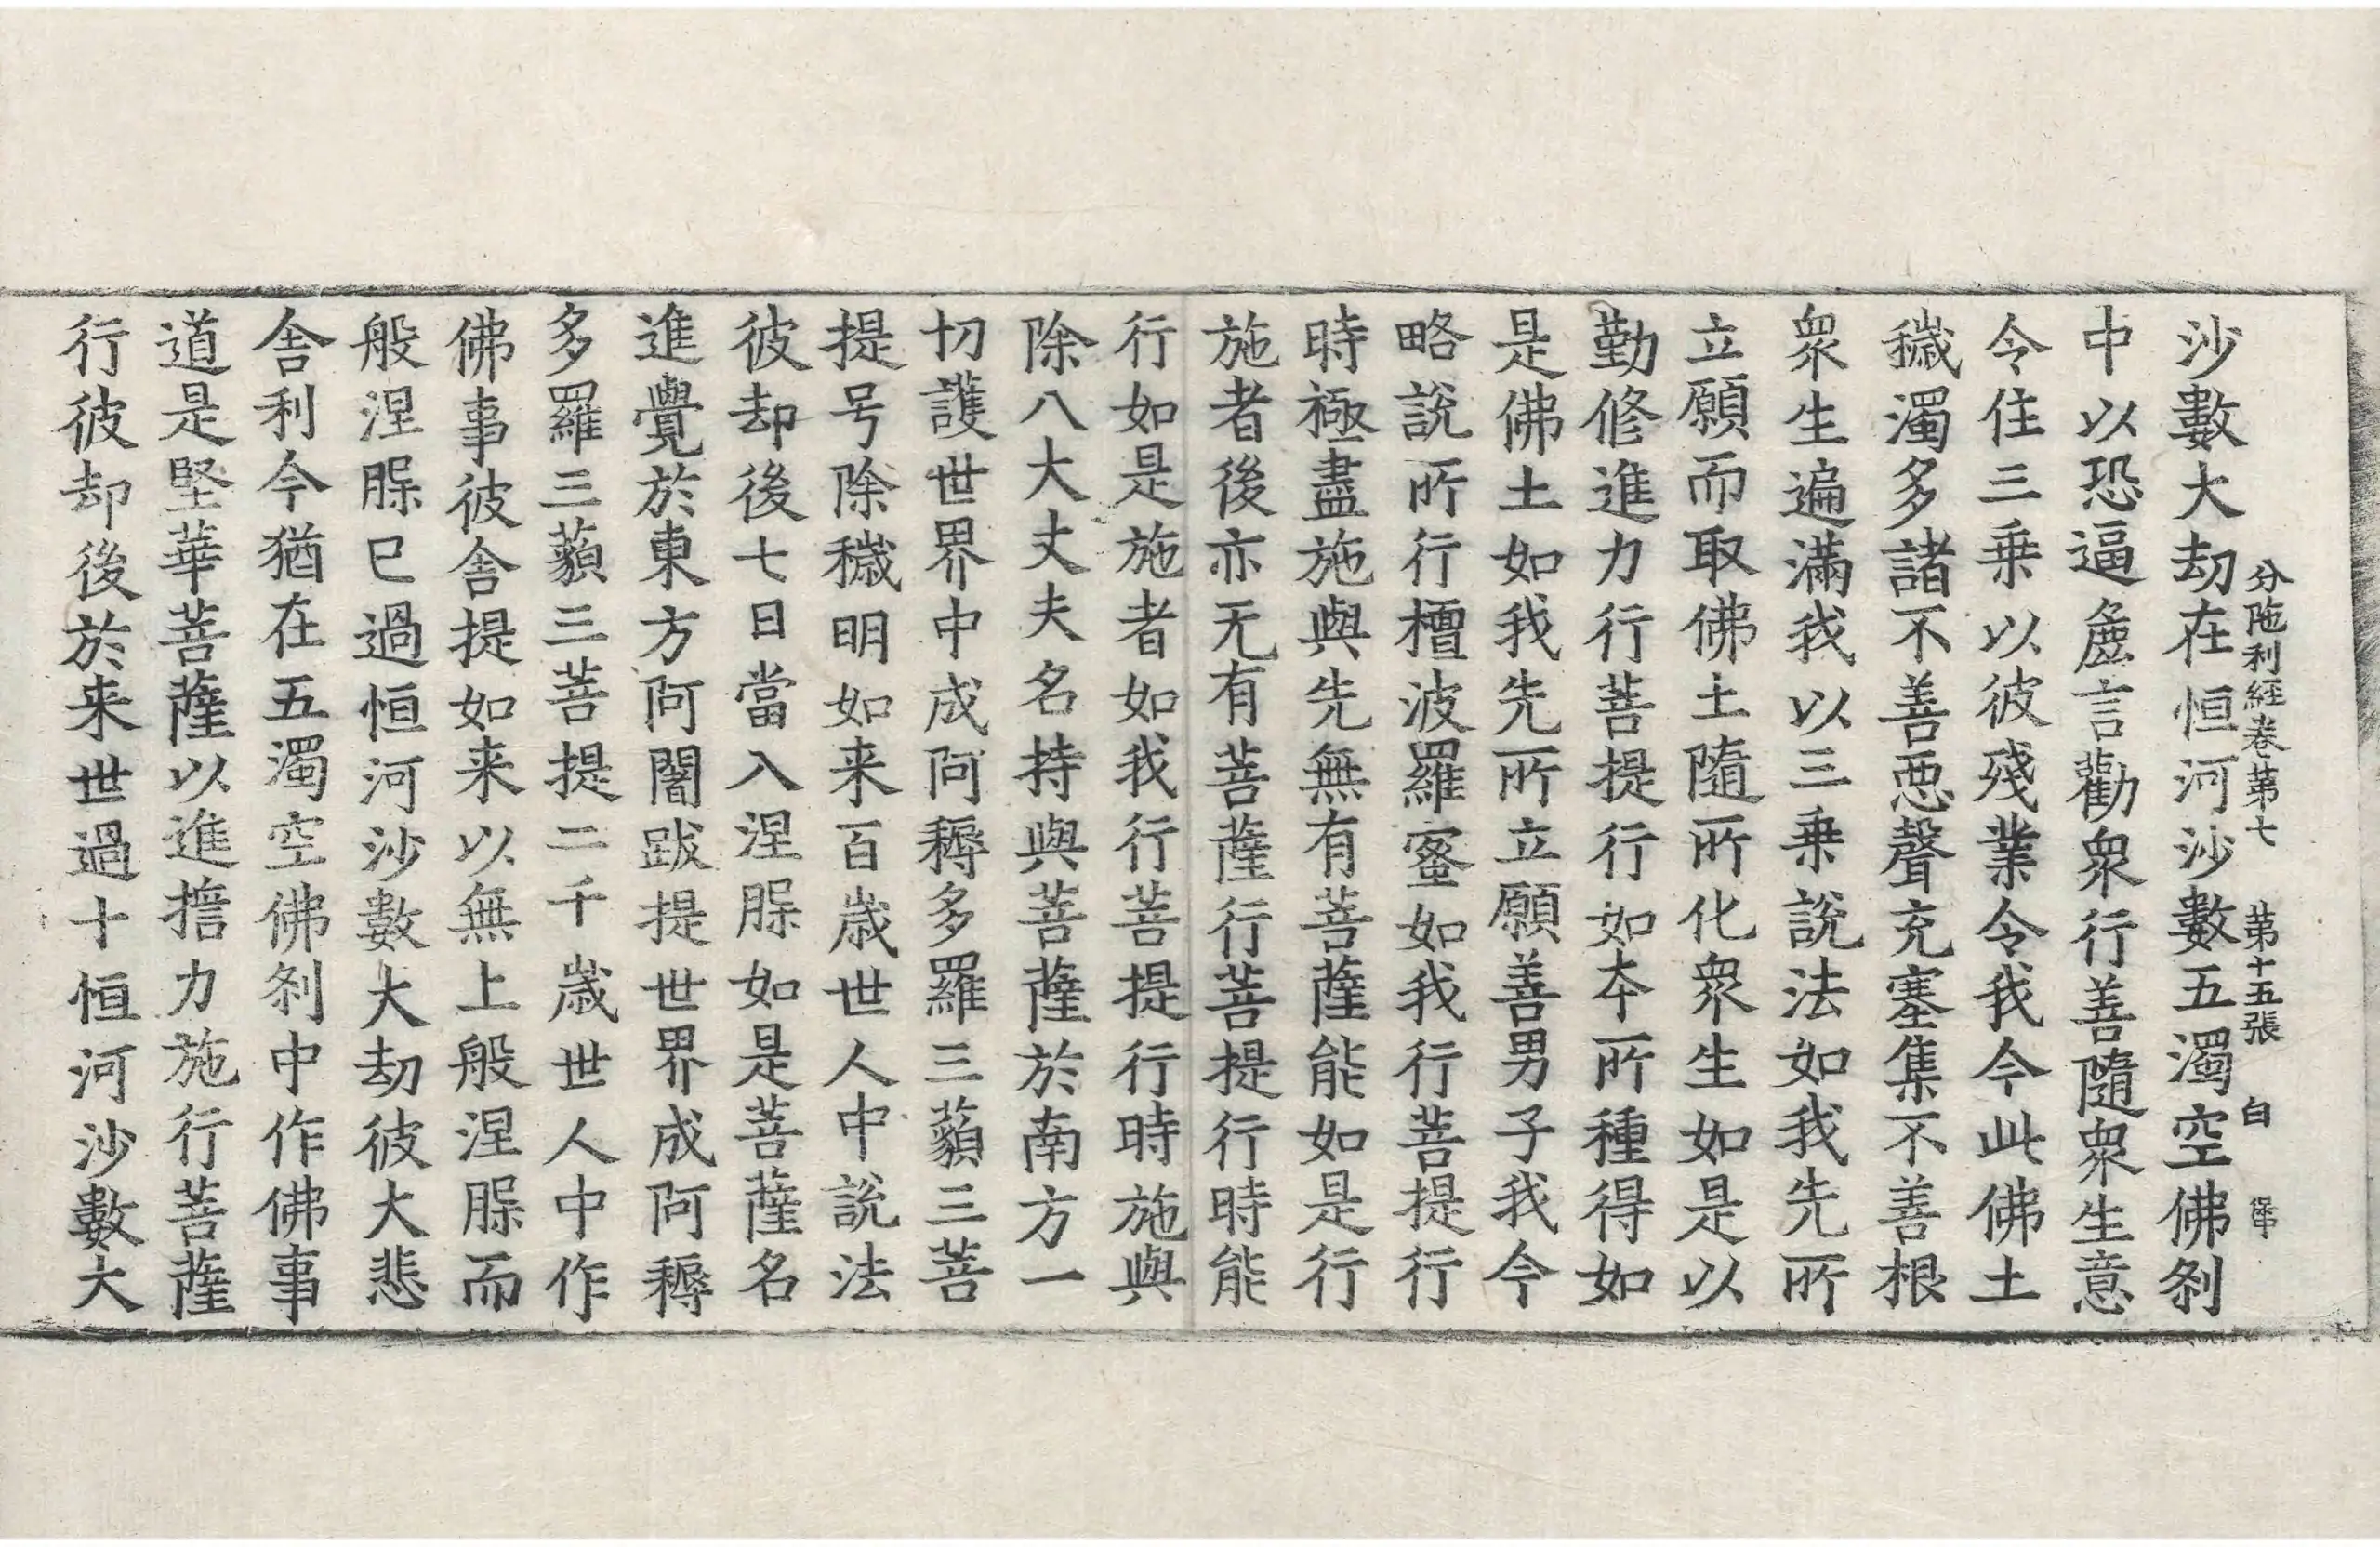 沙數大劫在恒河沙數五濁空佛刹
分陁利經卷苐七 苐十五張 白
中以恐逼麁言勸衆行善隨衆生意
令住三乗以彼殘業令我今此佛土
穢濁多諸不善悪聲充塞集不善根
衆生遍滿我以三乗說法如我先所
立願而取佛土隨所化衆生如是以
勤修進力行菩提行如夲所種得如
是佛土如我先所立願善男子我今
略說所行檀波羅蜜如我行菩提行
時極盡施與先無有菩薩能如是行
施者後亦无有菩薩行菩提行時能
行如是施者如我行菩提行時施與
除八大丈夫名持與菩薩於南方一
切護世界中成阿耨多羅三藐三菩
提号除穢明如来百歲世人中說法
彼却後七日當入涅脲如是菩薩名
進覺於東方阿闍跋提世界成阿耨
多羅三藐三菩提二千歲世人中作
佛事彼舎提如来以無上般涅脲而
般涅脲巳過恒河沙數大劫彼大悲
舎利今猶在五濁空佛刹中作佛事
道是堅華菩薩以進擔力施行菩薩
行彼却後於来世過十恒河沙數大